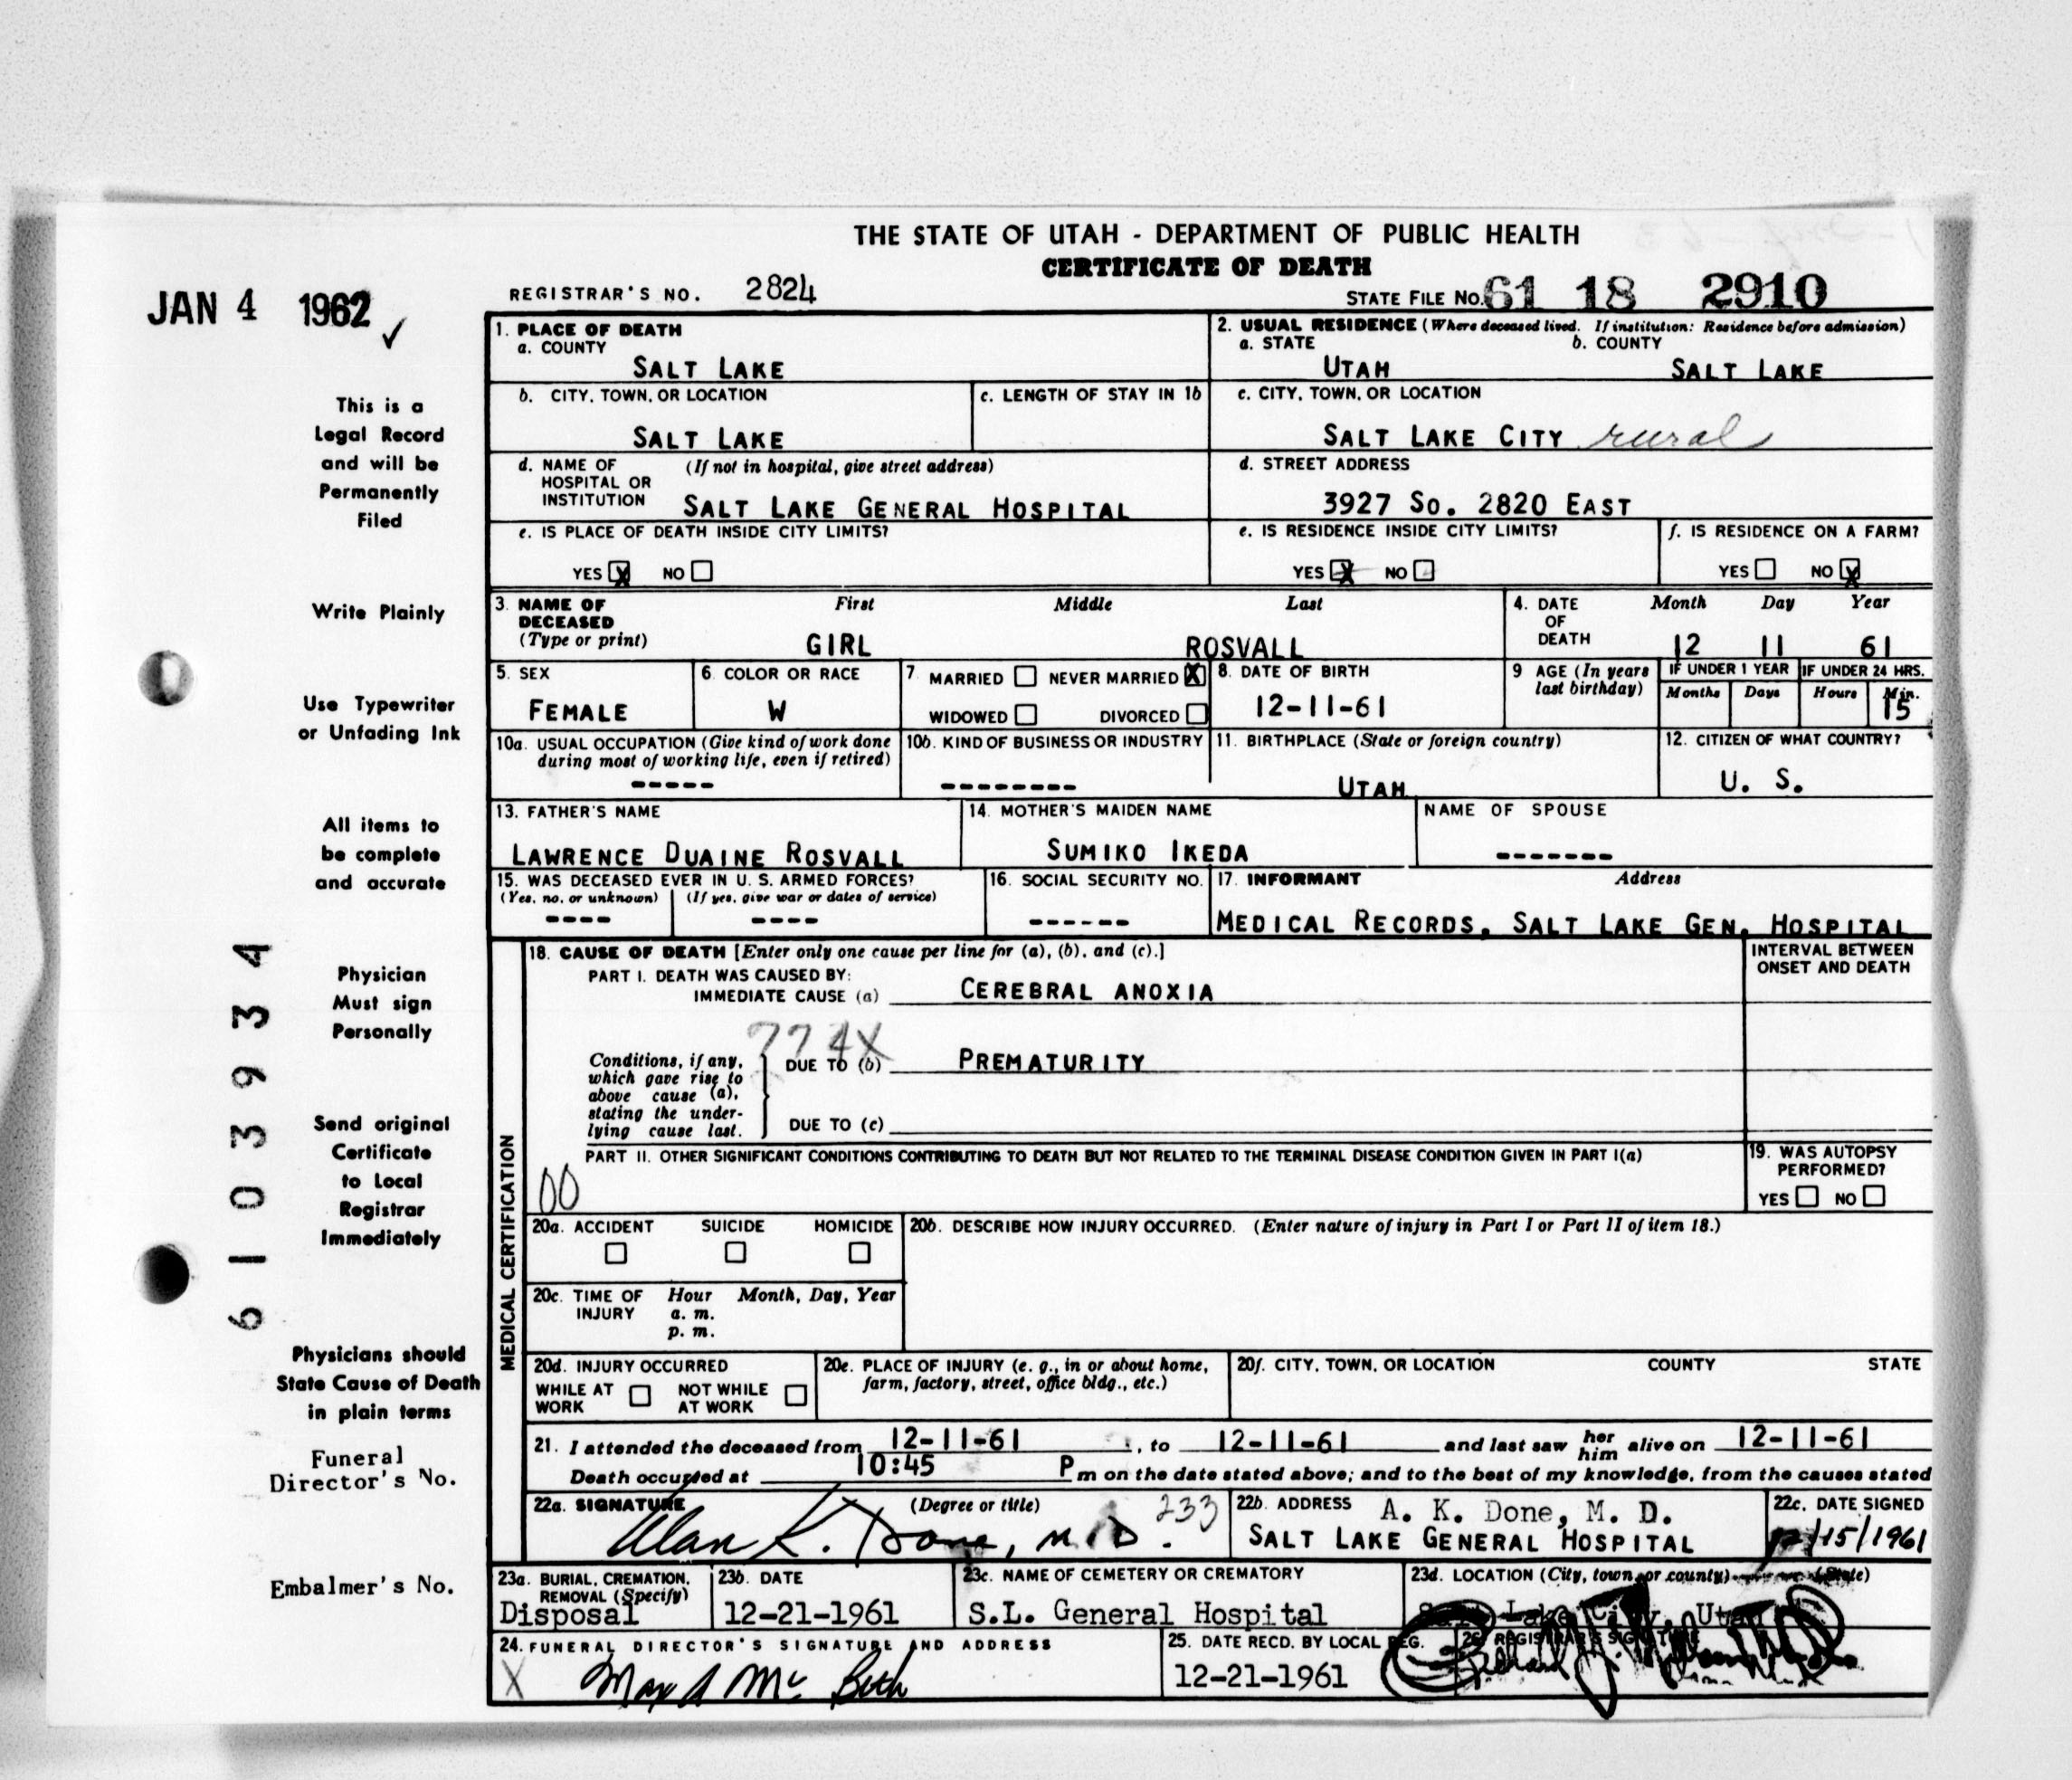 THE STATE OF UTAH - DEPARTMENT OF PUBLIC HEALTH
CERTIFICATE OF DEATH
JAN 4 1962 ✓
REGISTRAR'S NO. 2824
STATE FILE NO. 61 18 2910
This is a
Legal Record
and will be
Permanently
Filed
Write Plainly
Use Typewriter
or Unfading Ink
All items to
be complete
and accurate
Physician
Must sign
Personally
Send original
Certificate
to Local
Registrar
Immediately
Physicians should
State Cause of Death
in plain terms
Funeral
Director's No.
Embalmer's No.
6103934
1. PLACE OF DEATH
a. COUNTY
SALT LAKE
2. USUAL RESIDENCE (Where deceased lived. If institution: Residence before admission)
a. STATE b. COUNTY
UTAH SALT LAKE
b. CITY, TOWN, OR LOCATION
SALT LAKE
c. LENGTH OF STAY IN 1b
c. CITY, TOWN, OR LOCATION
SALT LAKE CITY rural
d. NAME OF (If not in hospital, give street address)
HOSPITAL OR
INSTITUTION SALT LAKE GENERAL HOSPITAL
d. STREET ADDRESS
3927 SO. 2820 EAST
e. IS PLACE OF DEATH INSIDE CITY LIMITS?
YES X NO
e. IS RESIDENCE INSIDE CITY LIMITS?
YES X NO
f. IS RESIDENCE ON A FARM?
YES NO X
3. NAME OF First Middle Last
DECEASED
(Type or print) GIRL ROSVALL
4. DATE Month Day Year
OF
DEATH 12 11 61
5. SEX
FEMALE
6. COLOR OR RACE
W
7. MARRIED NEVER MARRIED X
WIDOWED DIVORCED
8. DATE OF BIRTH
12-11-61
9 AGE (In years
last birthday)
IF UNDER 1 YEAR IF UNDER 24 HRS.
Months Days Hours Min.
15
10a. USUAL OCCUPATION (Give kind of work done
during most of working life, even if retired)
-----
10b. KIND OF BUSINESS OR INDUSTRY
--------
11. BIRTHPLACE (State or foreign country)
UTAH
12. CITIZEN OF WHAT COUNTRY?
U. S.
13. FATHER'S NAME
LAWRENCE DUAINE ROSVALL
14. MOTHER'S MAIDEN NAME
SUMIKO IKEDA
NAME OF SPOUSE
-------
15. WAS DECEASED EVER IN U. S. ARMED FORCES?
(Yes, no, or unknown) (If yes, give war or dates of service)
---- ----
16. SOCIAL SECURITY NO.
------
17. INFORMANT Address
MEDICAL RECORDS, SALT LAKE GEN. HOSPITAL
MEDICAL CERTIFICATION
18. CAUSE OF DEATH [Enter only one cause per line for (a), (b), and (c).]
INTERVAL BETWEEN
ONSET AND DEATH
PART I. DEATH WAS CAUSED BY:
IMMEDIATE CAUSE (a) CEREBRAL ANOXIA
774X
Conditions, if any,
which gave rise to
above cause (a),
stating the under-
lying cause last.
DUE TO (b) PREMATURITY
DUE TO (c)
PART II. OTHER SIGNIFICANT CONDITIONS CONTRIBUTING TO DEATH BUT NOT RELATED TO THE TERMINAL DISEASE CONDITION GIVEN IN PART I(a)
00
19. WAS AUTOPSY
PERFORMED?
YES NO
20a. ACCIDENT SUICIDE HOMICIDE
20b. DESCRIBE HOW INJURY OCCURRED. (Enter nature of injury in Part I or Part II of item 18.)
20c. TIME OF Hour Month, Day, Year
INJURY a. m.
p. m.
20d. INJURY OCCURRED
WHILE AT NOT WHILE
WORK AT WORK
20e. PLACE OF INJURY (e. g., in or about home,
farm, factory, street, office bldg., etc.)
20f. CITY, TOWN, OR LOCATION COUNTY STATE
21. I attended the deceased from 12-11-61, to 12-11-61 and last saw her him alive on 12-11-61
Death occurred at 10:45 P m on the date stated above; and to the best of my knowledge, from the causes stated
22a. SIGNATURE (Degree or title) 233
Alan K. Done, M.D.
22b. ADDRESS A. K. Done, M. D.
SALT LAKE GENERAL HOSPITAL
22c. DATE SIGNED
12/15/1961
23a. BURIAL, CREMATION,
REMOVAL (Specify)
Disposal
23b. DATE
12-21-1961
23c. NAME OF CEMETERY OR CREMATORY
S.L. General Hospital
23d. LOCATION (City, town, or county) (State)
Salt Lake City, Utah
24. FUNERAL DIRECTOR'S SIGNATURE AND ADDRESS
X Max A Mc Beth
25. DATE RECD. BY LOCAL REG.
12-21-1961
26. REGISTRAR'S SIGNATURE